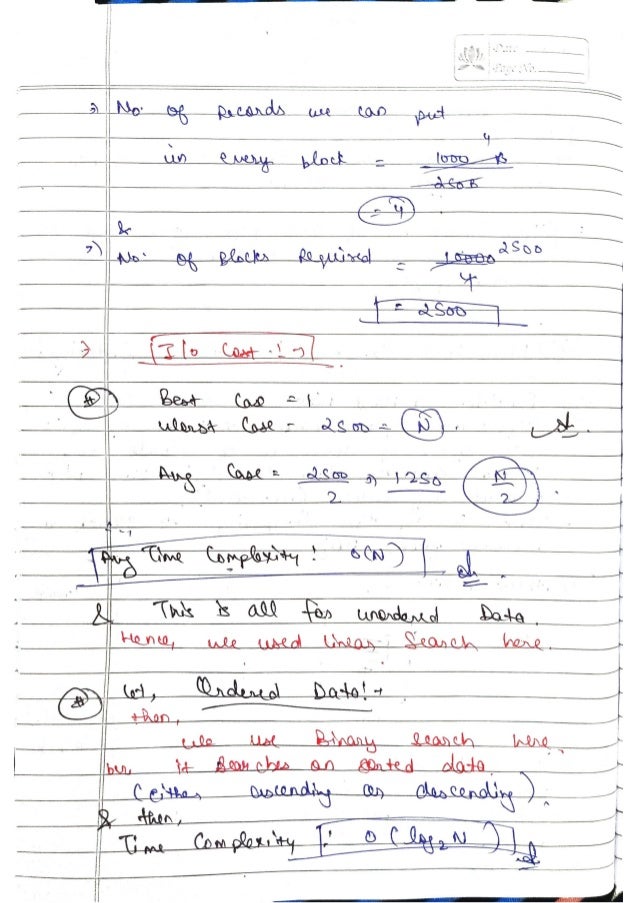 Date
Page No.
⇒ No. of Records we can put
in every block = 1000 B / 250 B 4
= 4
&
⇒) No. of Blocks Required = 10000 / 4 2500
= 2500
⇒ I/o Cost :→
# Best Case = 1
Worst Case = 2500 = N.
Avg Case = 2500/2 ⇒ 1250 N/2.
Avg Time Complexity : O(N)
& This is all for unordered Data.
Hence, we used linear Search here.
# let, Ordered Data:→
then,
we use Binary search here
it Searches on sorted data
(either ascending or descending).
& then,
Time Complexity : O(log₂N)